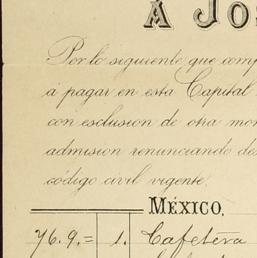 Á JOS
Por lo siguiente que comp
á pagar en esta Capital
con esclusion de otra mon
admision renunciando de
código civil vigente.
MÉXICO,
76.9.= 1. Cafetera